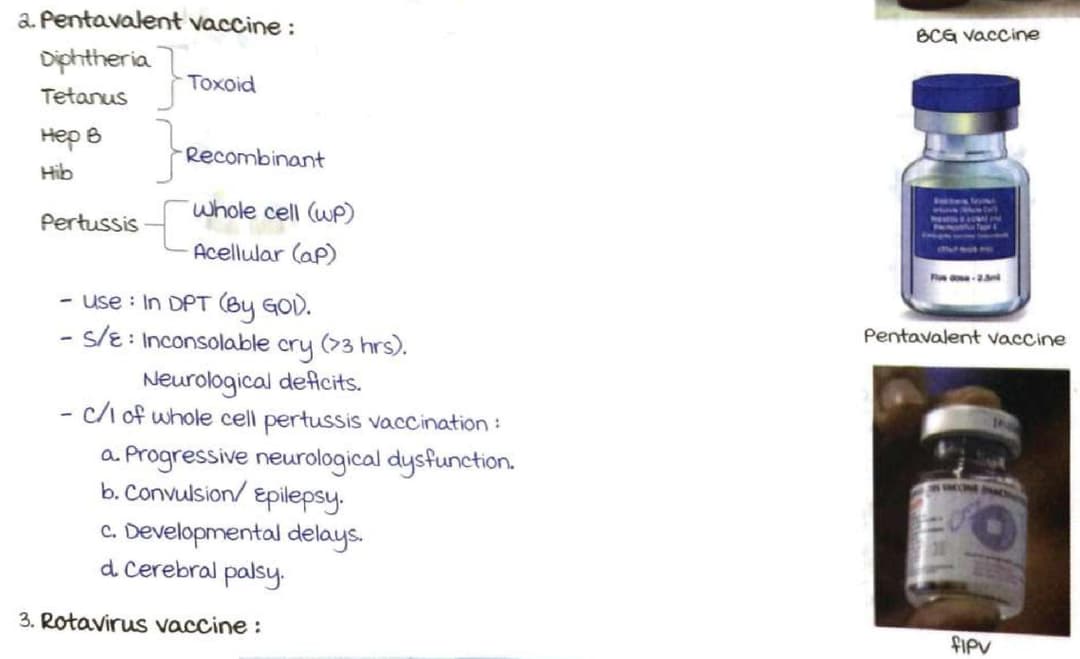 2. Pentavalent vaccine :
Diphtheria
Tetanus
Toxoid
Hep B
Hib
Recombinant
Pertussis
Whole cell (wP)
Acellular (aP)
- use : In DPT (By GOI).
- S/E : Inconsolable cry (>3 hrs).
Neurological deficits.
- C/I of whole cell pertussis vaccination :
a. Progressive neurological dysfunction.
b. Convulsion/ Epilepsy.
c. Developmental delays.
d. Cerebral palsy.
3. Rotavirus vaccine :
BCG vaccine
Five dose - 2.5ml
Pentavalent vaccine
VACCINE
fIPV